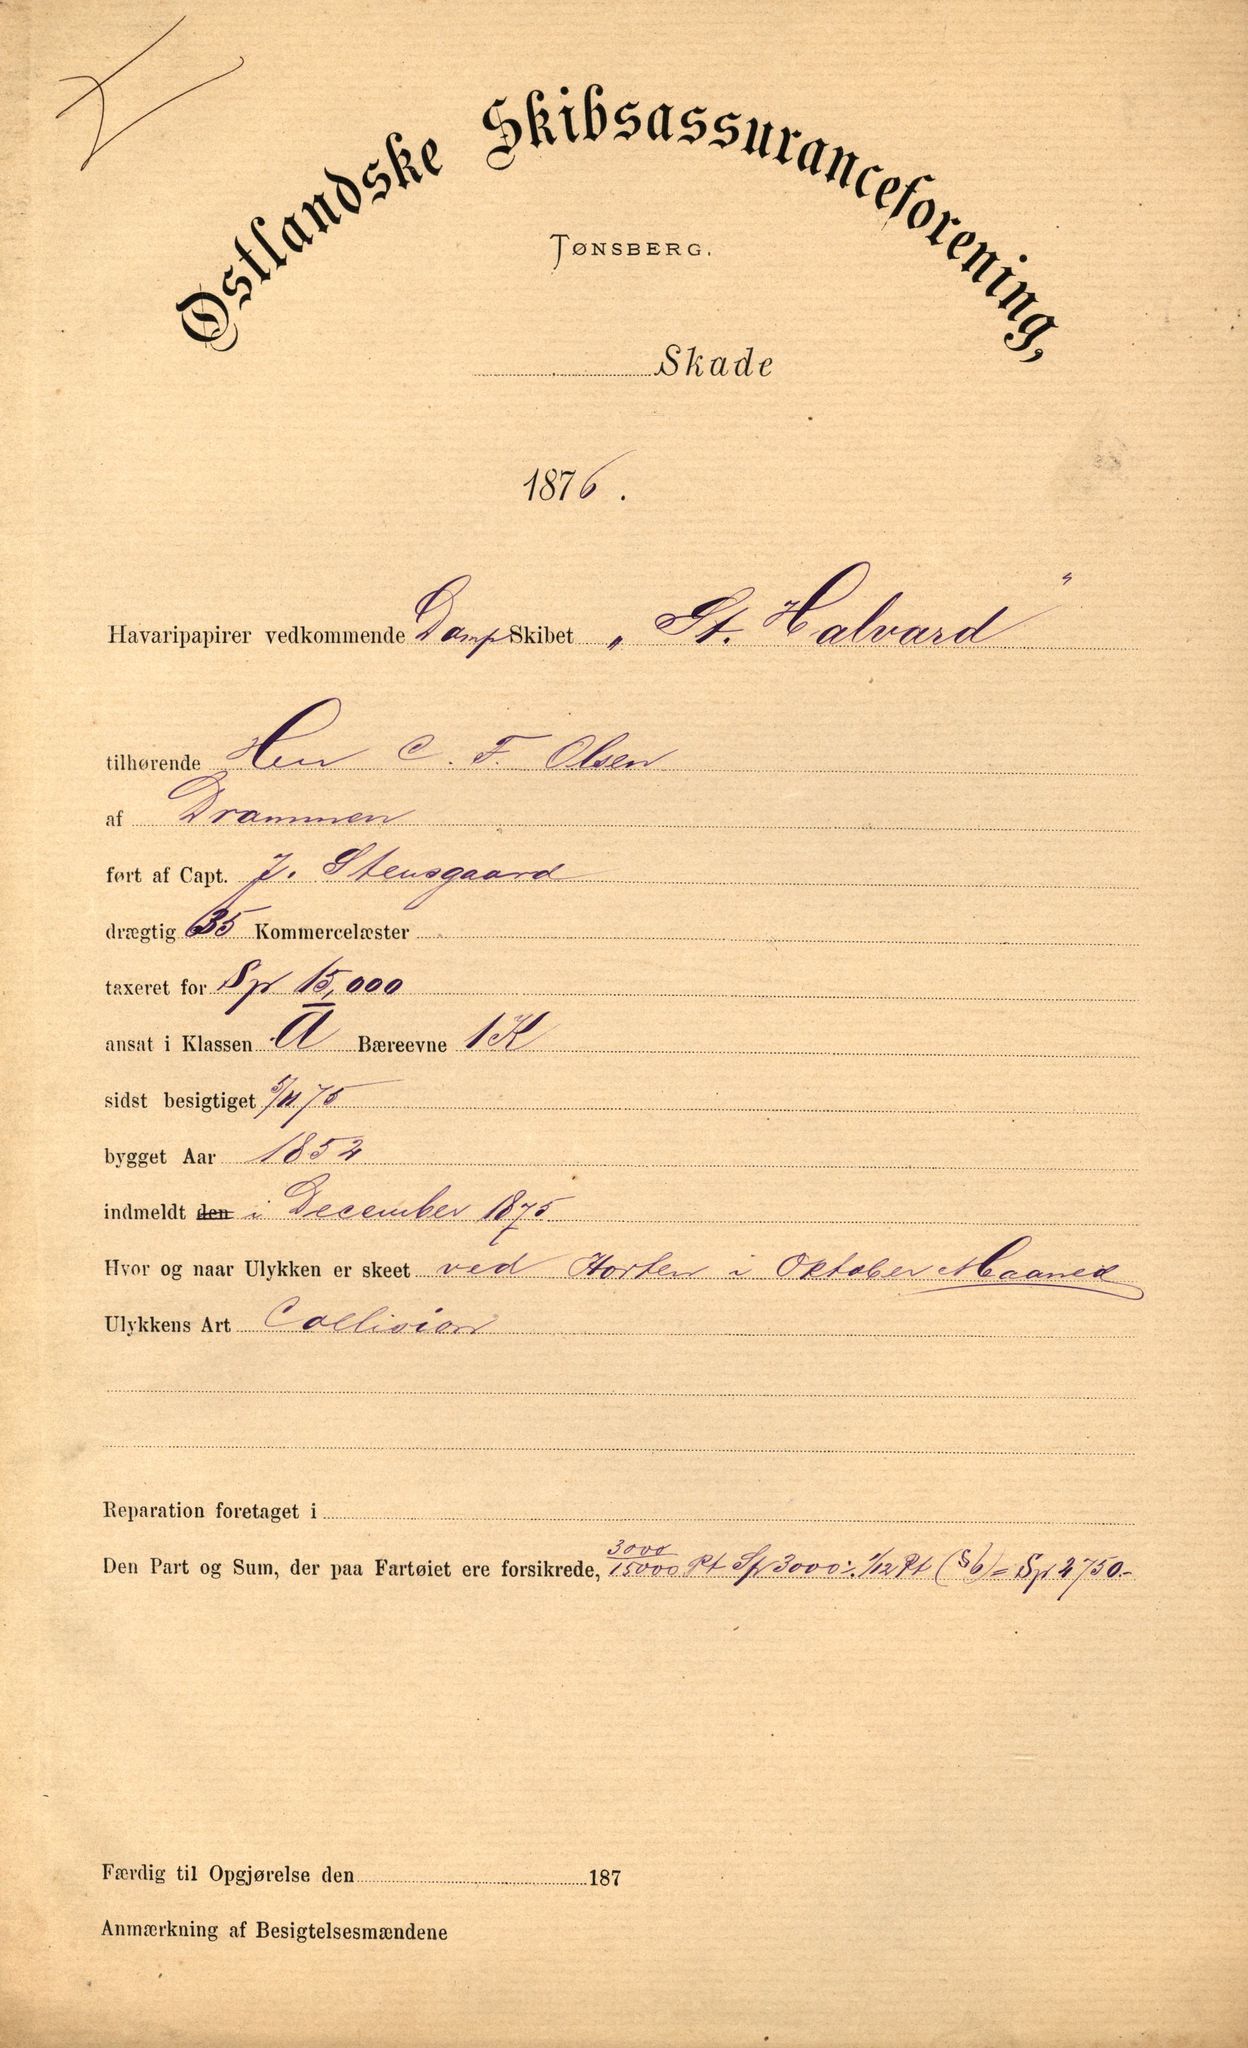 Østlandske Skibsassuranceforening,
TØNSBERG.
Skade
1876.
Havaripapirer vedkommende DampSkibet „St. Halvard"
tilhørende Herr C. F. Olsen
af Drammen
ført af Capt. J. Stensgaard
drægtig 35 Kommercelæster
taxeret for Sp 15,000
ansat i Klassen A Bæreevne 1K
sidst besigtiget 5/11 75
bygget Aar 1852
indmeldt den i December 1875
Hvor og naar Ulykken er skeet ved Horten i Oktober Maaned
Ulykkens Art Collision
Reparation foretaget i
Den Part og Sum, der paa Fartøiet ere forsikrede, 3000/15000 Pt Sp 3000 ÷ 1/12 Pt (§6) = Sp 2750.-
Færdig til Opgjørelse den 187
Anmærkning af Besigtelsesmændene